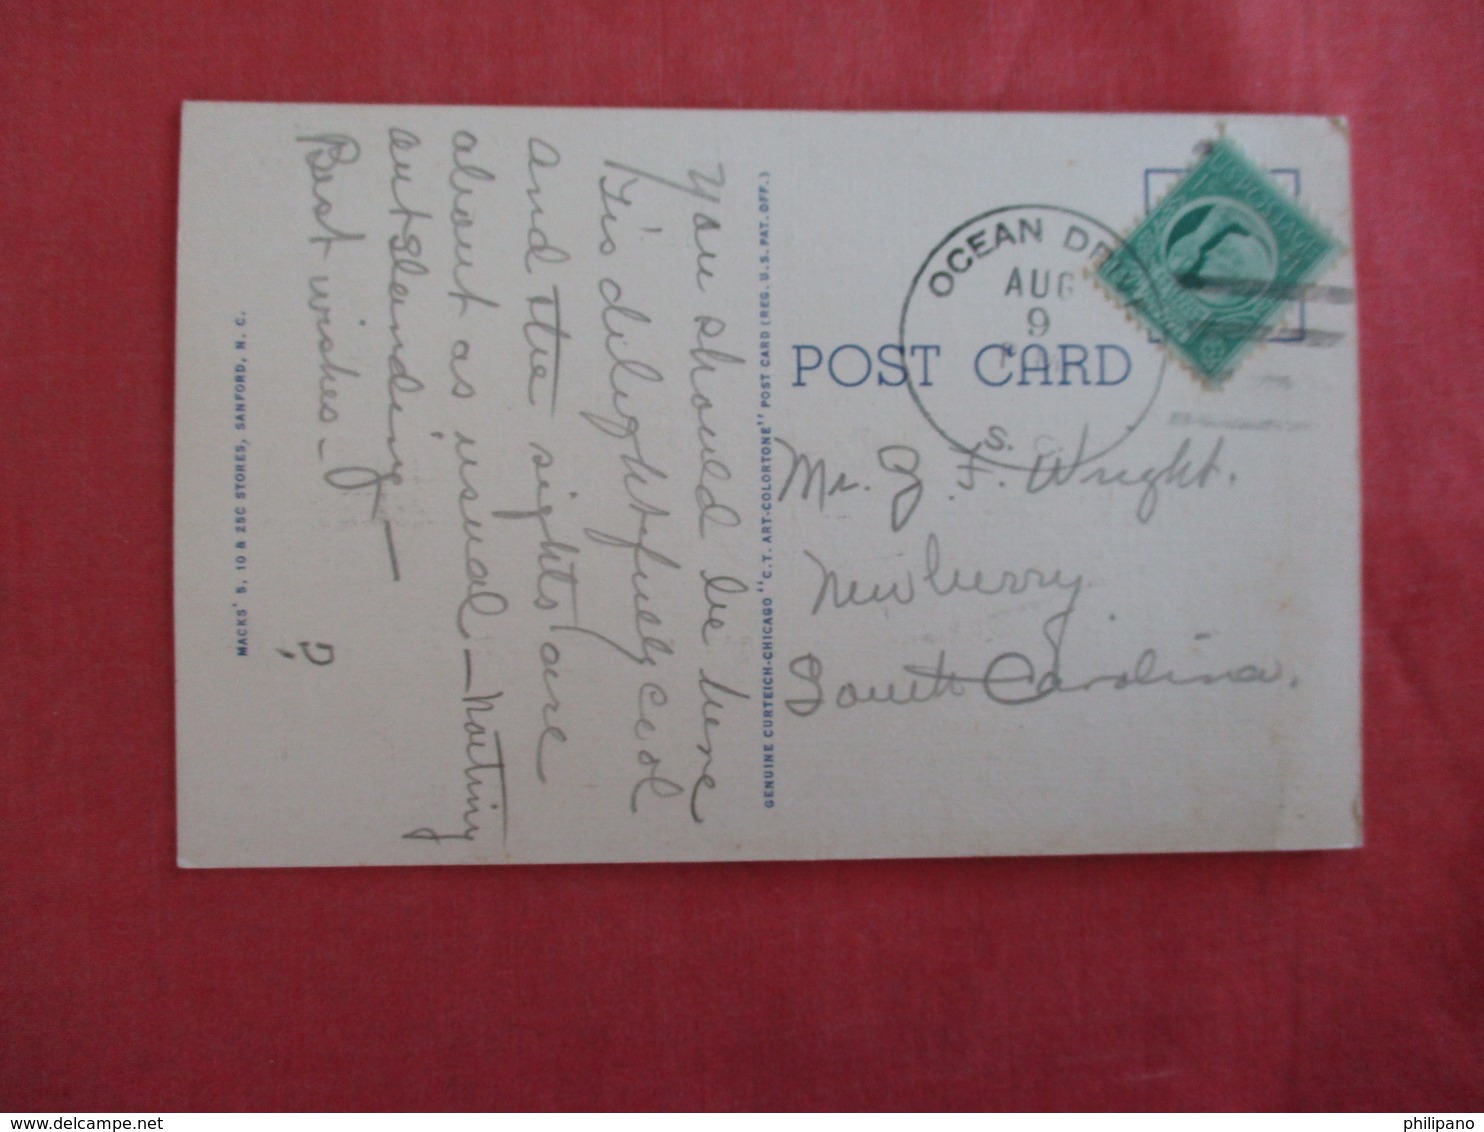 You should be here
'Tis delightfully cool
and the sights are
about as usual - Nothing
outstanding -
Best wishes -
?
MACKS' 5, 10 & 25C STORES, SANFORD, N. C.
GENUINE CURTEICH-CHICAGO "C.T. ART-COLORTONE" POST CARD (REG. U.S. PAT. OFF.)
OCEAN DRIVE
AUG
9
PM
S. C.
POST CARD
Mr. Z. F. Wright.
Newberry
South Carolina.
delcampe.net
philipano